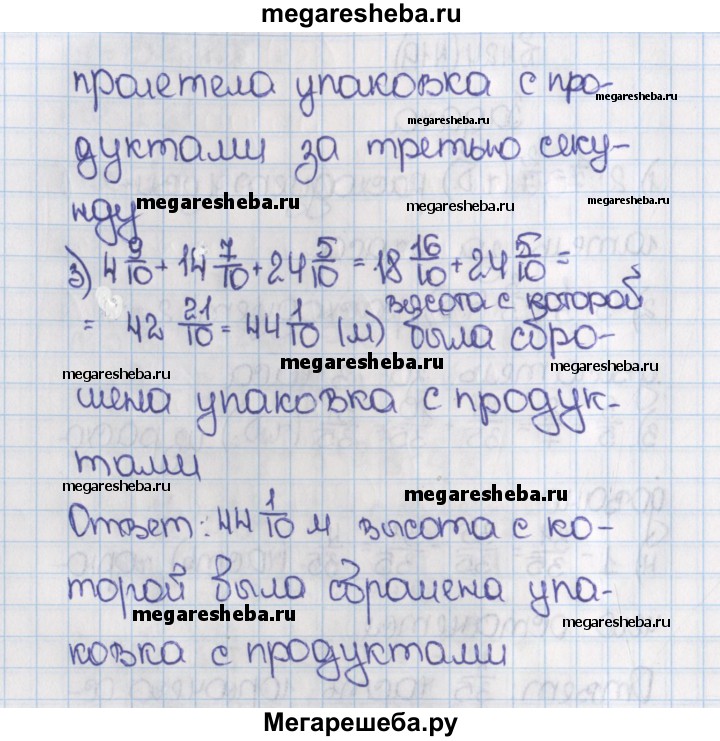 megaresheba.ru
пролетела упаковка с про-
megaresheba.ru
megaresheba.ru
дуктами за третью секу-
megaresheba.ru
megaresheba.ru
нду
3) 4 9/10 + 14 7/10 + 24 5/10 = 18 16/10 + 24 5/10 =
= 42 21/10 = 44 1/10 (м) высота с которой
была сбро-
megaresheba.ru
megaresheba.ru
megaresheba.ru
шена упаковка с продук-
тами
megaresheba.ru
megaresheba.ru
Ответ: 44 1/10 м высота с ко-
megaresheba.ru
торой была сброшена упа-
megaresheba.ru
megaresheba.ru
ковка с продуктами
Мегарешеба.ру